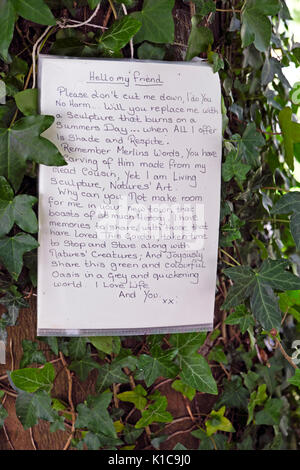 Hello my Friend
Please don't cut me down, I do You
No Harm... Will you replace me with
a Sculpture that burns on a
Summers Day... when All I offer
is Shade and Respite.
Remember Merlins Words, You have
a carving of Him made from my
dead Cousin, Yet I am Living
Sculpture, Natures' Art.
Why can you Not make room
for me in your New town, that
boasts of so much History. I have
memories to share, with those that
have Loved This Green. Wanton time
to Stop and Stare along with
Natures' Creatures; And Joyously
share this green and colourful
Oasis in a Grey and quickening
world. I Love Life
And You.
xx.
alamy
Image ID: K1C9J0
www.alamy.com